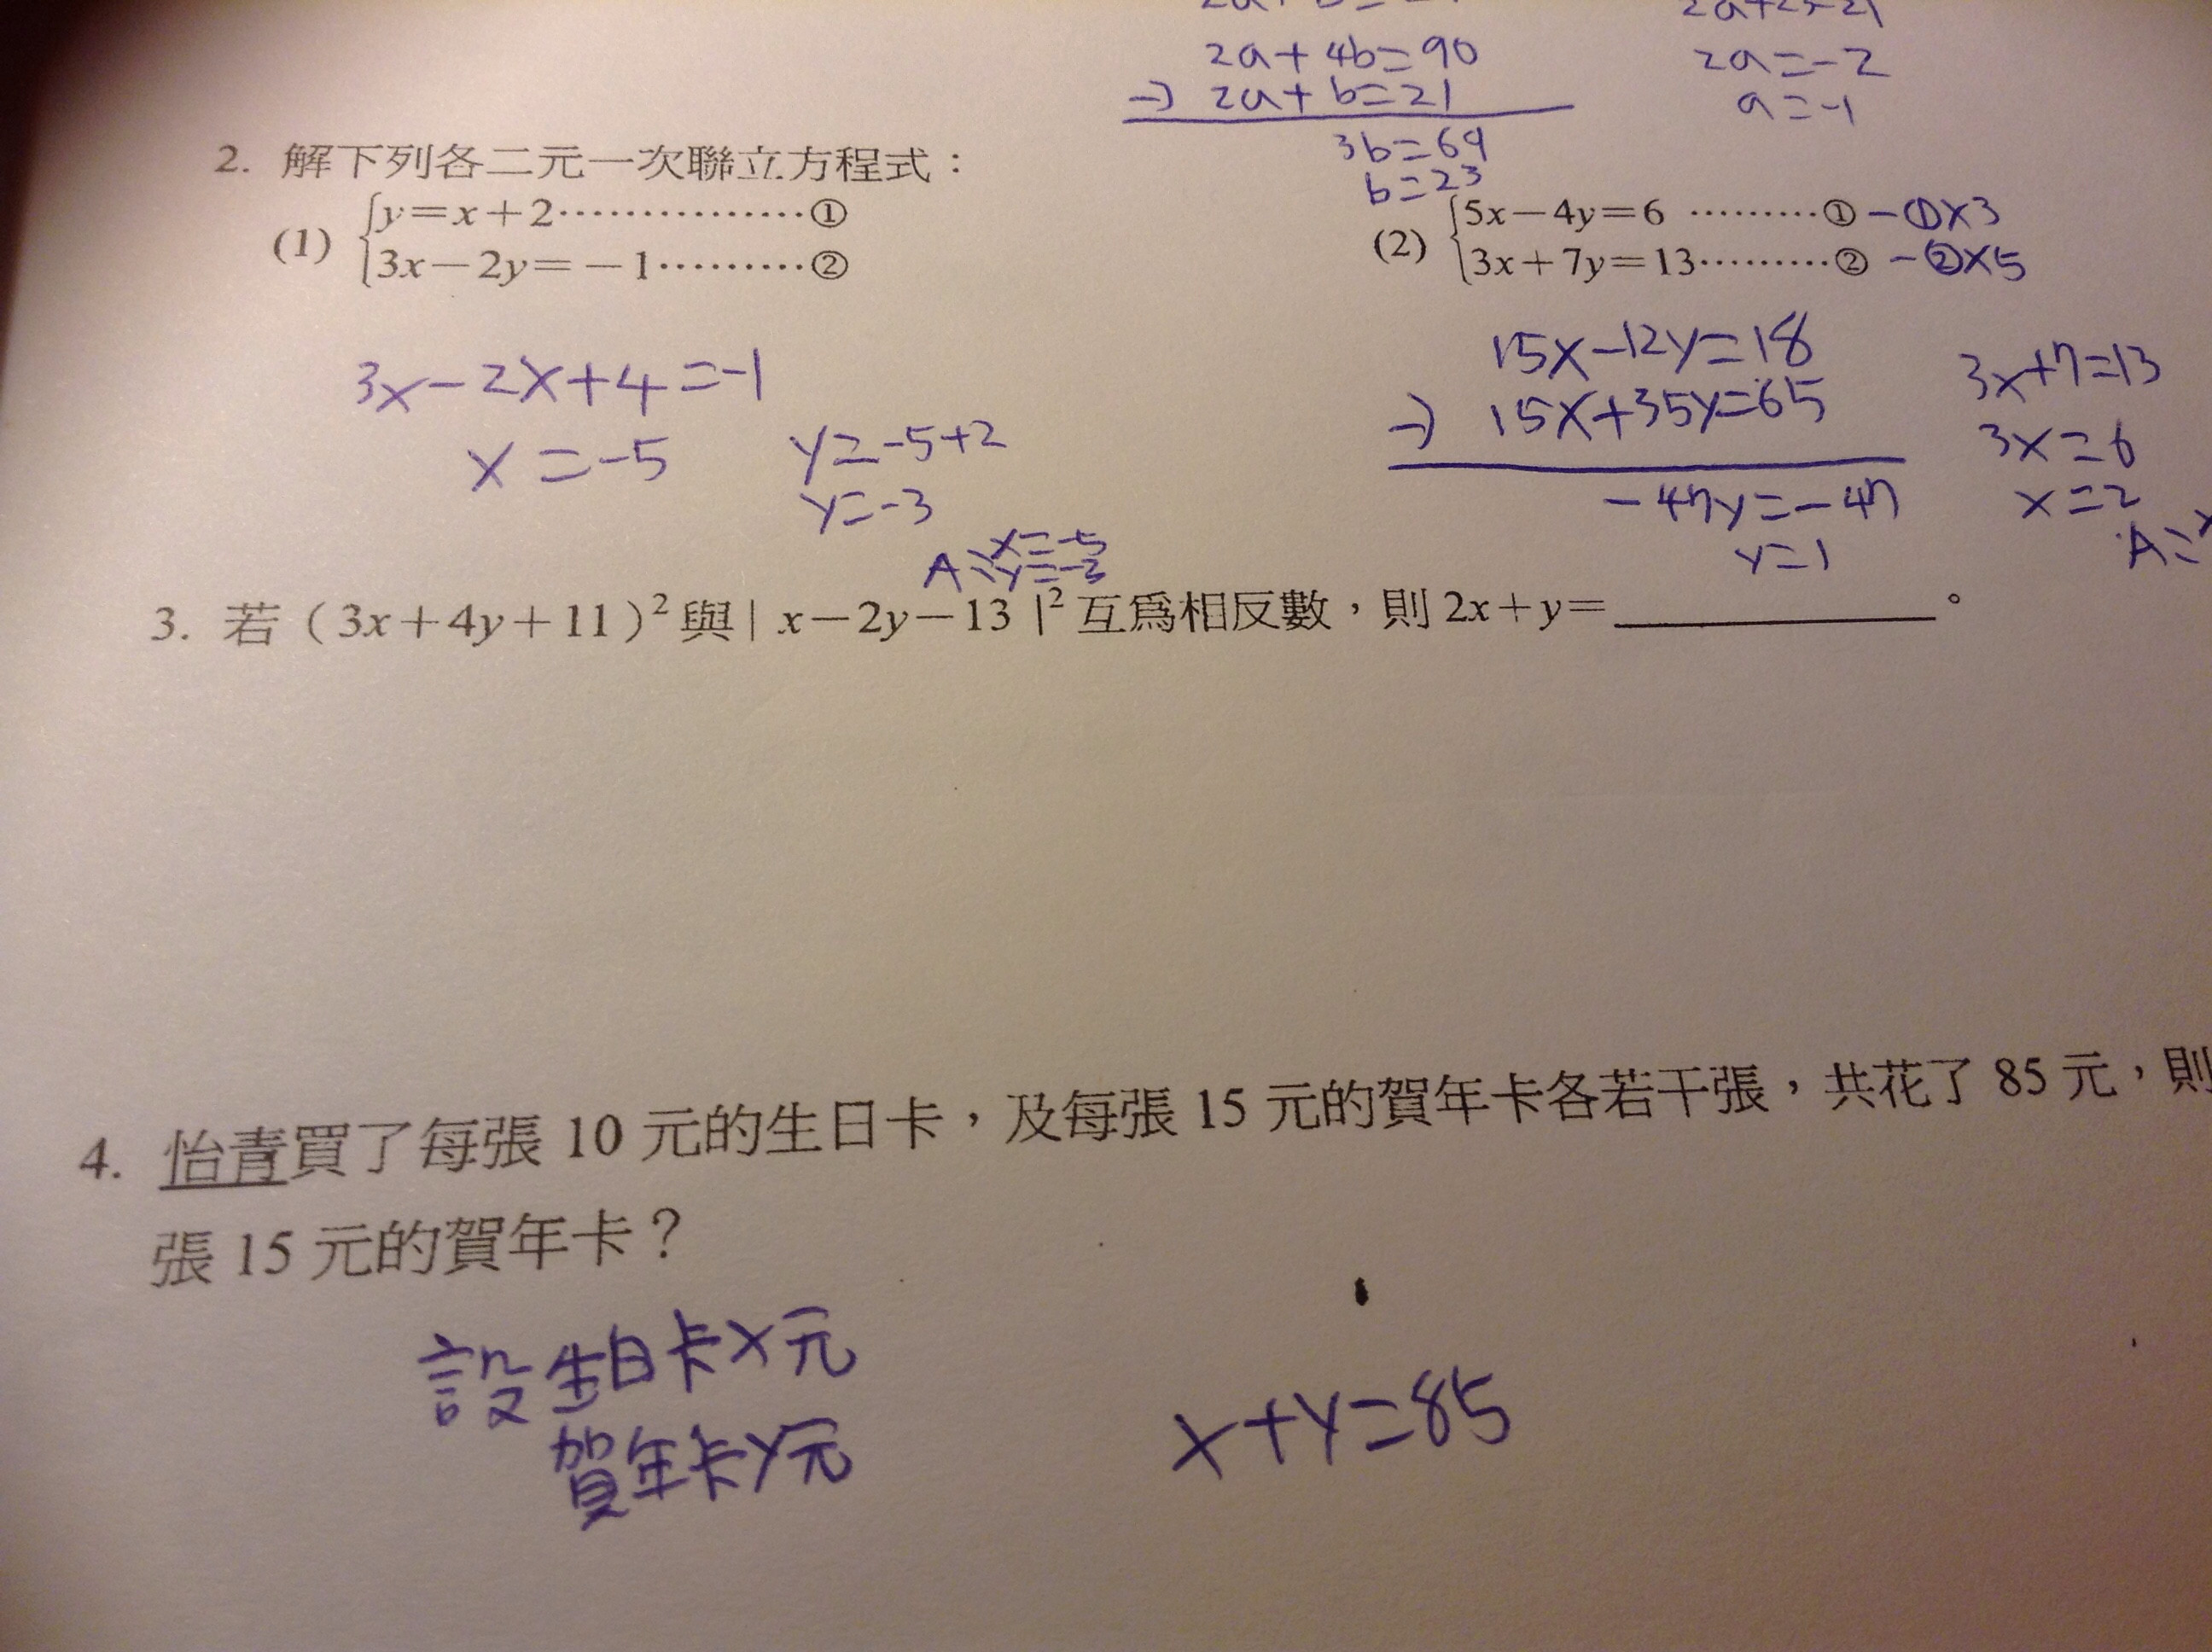 2a+4b=90
-) 2a+b=21
3b=69
b=23
2a+23=21
2a=-2
a=-1
2. 解下列各二元一次聯立方程式：
(1) y=x+2……………①
3x-2y=-1………②
3x-2x+4=-1
x=-5
y=-5+2
y=-3
A: x=-5
y=-3
(2) 5x-4y=6 ………① -①×3
3x+7y=13………② -②×5
15x-12y=18
-) 15x+35y=65
-47y=-47
y=1
3x+7=13
3x=6
x=2
A:
3. 若（3x+4y+11）²與| x-2y-13 |²互為相反數，則 2x+y=＿＿＿＿＿＿。
4. 怡青買了每張 10 元的生日卡，及每張 15 元的賀年卡各若干張，共花了 85 元，則
張 15 元的賀年卡？
設生日卡x元
賀年卡y元
x+y=85